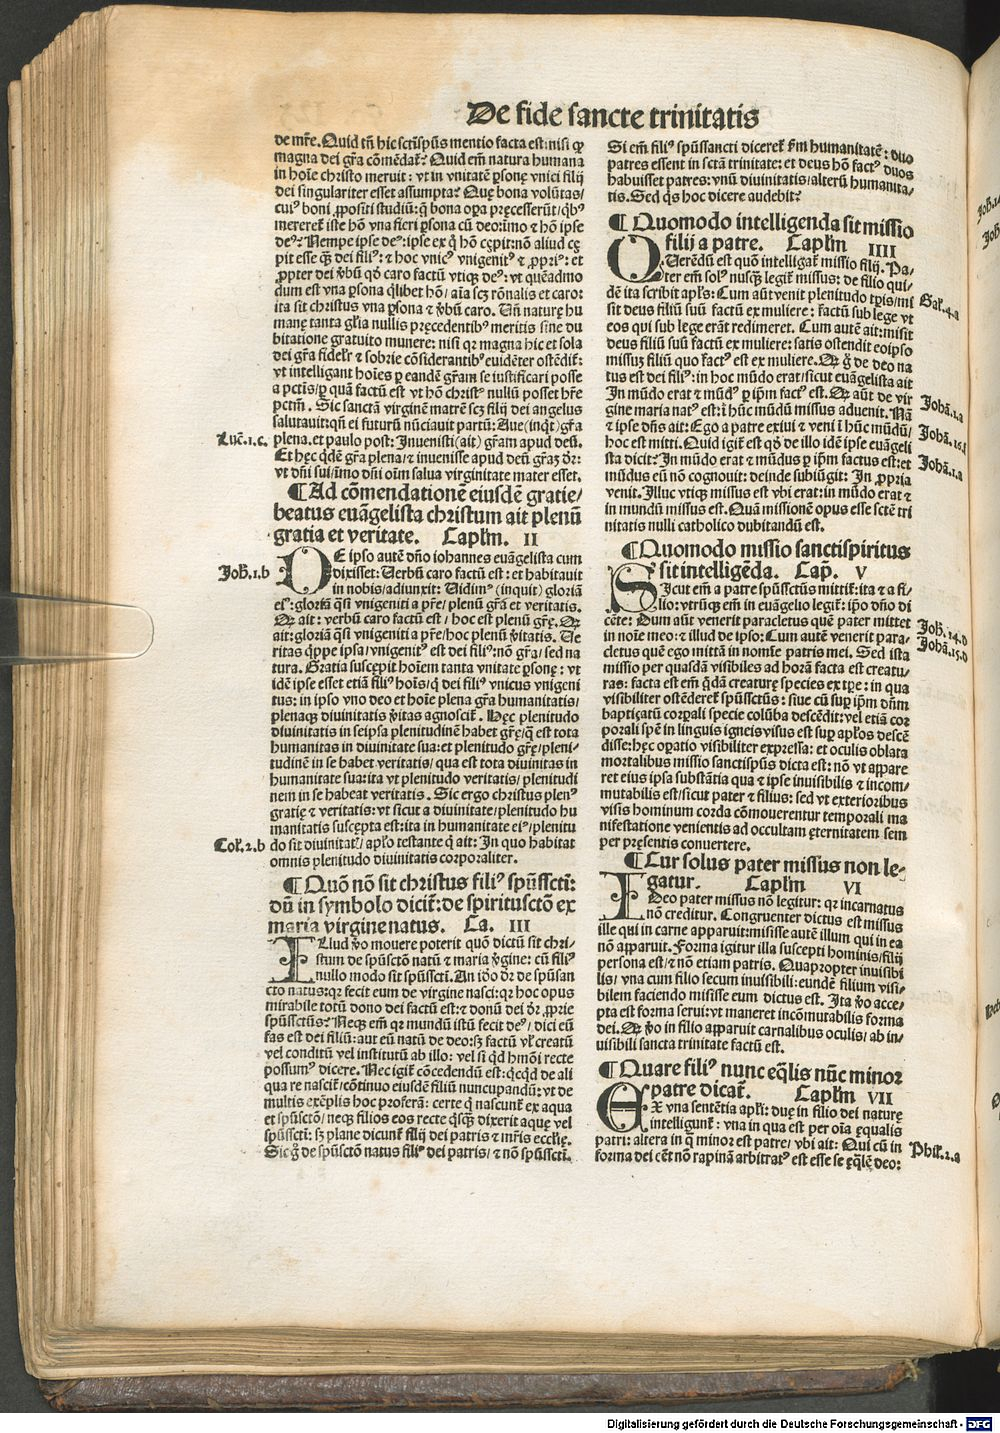 De fide sancte trinitatis
de mr̄e. Quid tn̄ hic sct̄ispūs mentio facta est: nisi qꝛ
magna dei gr̄a cōmēdat̄? Quid em̄ natura humana
in hoīe christo meruit: vt in vnitatē ꝑsonę vnici filij
dei singulariter esset assumpta? Quę bona volūtas/
cuiꝰ boni ꝓpositi studiū: q̄ bona oꝑa pręcesserūt/ qͥbꝰ
mereret̄ iste hō vna fieri ꝑsona cū deo: īmo ⁊ hō ipse
deꝰ? Nempe ipse deꝰ: ipse ex q̄ hō cępit: nō aliud cę
pit esse qꝫ dei filiꝰ: ⁊ hoc vnicꝰ vnigenitꝰ ⁊ ꝓpriꝰ: et
ꝓpter dei v̄bū qd̄ caro factū vtiqꝫ deꝰ: vt quēadmo
dum est vna ꝑsona qlibet hō/ aīa scꝫ rōnalis et caro:
ita sit christus vna ꝑsona ⁊ v̄bū caro. Un̄ naturę hu
manę tanta gl̄ia nullis pręcedentibꝰ meritis sine du
bitatione gratuito munere: nisi qꝛ magna hic et sola
dei gr̄a fidelr̄ ⁊ sobrie cōsiderantibꝰ euidēter ostēdit̄:
vt intelligant hoīes ꝑ eandē gr̄am se iustificari posse
a pctīs/ ꝑ quā factū est vt hō christꝰ nullū posset hr̄e
pctm̄. Sic sanctā virginē matrē scꝫ filij dei angelus
salutauit: qn̄ ei futurū nūciauit partū: Aue (inqͥt) gr̄a
Luč. 1. c.
plena. et paulo post: Inuenisti (ait) gr̄am apud deū.
Et hęc qͥdē gr̄a plena/ ⁊ inuenisse apud deū gr̄aꝫ dr̄:
vt dn̄i sui/ īmo dn̄i oīm salua virginitate mater esset.
¶ Ad cōmendationē eiusdē gratie/
beatus euāgelista christum ait plenū
gratia et veritate. Caplm̄. II
Joh̄. 1. b
DE ipso autē dn̄o iohannes euāgelista cum
dixisset: Uerbū caro factū est: et habitauit
in nobis/ adiunxit: Uidimꝰ (inquit) gloriā
eiꝰ: gloriā qͣsi vnigeniti a pr̄e/ plenū gr̄a et veritatis.
Qꝛ ait: verbū caro factū est/ hoc est plenū gr̄ę. Qꝛ
ait: gloriā qͣsi vnigeniti a pr̄e/ hoc plenū v̄itatis. Ue
ritas qͥppe ipsa/ vnigenitꝰ est dei filiꝰ: nō gr̄a/ sed na
tura. Gratia suscępit hoīem tanta vnitate ꝑsonę: vt
idē ipse esset etiā filiꝰ hoīs/ q̄ dei filiꝰ vnicus vnigeni
tus: in ipso vno deo et hoīe plena gr̄a humanitatis/
plenaqꝫ diuinitatis v̄itas agnoscit̄. Hęc plenitudo
diuinitatis in seipsa plenitudinē habet gr̄ę/ qͣ est tota
humanitas in diuinitate sua: et plenitudo gr̄ę/ pleni-
tudinē in se habet veritatis/ qua est tota diuinitas in
humanitate sua: ita vt plenitudo veritatis/ plenitudi
nem in se habeat veritatis. Sic ergo christus plenꝰ
gratię ⁊ veritatis: vt sicut a diuinitate/ plenitudo hu
manitatis suscępta est: ita in humanitate eiꝰ/ plenitu
Col̄. 2. b
do sit diuinitatꝭ/ apl̄o testante q̄ ait: In quo habitat
omnis plenitudo diuinitatis corporaliter.
¶ Quō nō sit christus filiꝰ spūssctī:
dū in symbolo dicit̄: de spiritusctō ex
maria virgine natus. Ca. III
ILlud v̄o mouere poterit quō dictū sit chri-
stum de spūsctō natū ⁊ maria v̄gine: cū filiꝰ
nullo modo sit spūssctī. An iō dr̄ de spūsan
cto natus: qꝛ fecit eum de virgine nasci: qꝛ hoc opus
mirabile totū dono dei factū est: ⁊ donū dei dr̄ ꝓprie
spūssctūs? Neqꝫ em̄ qꝛ mundū istū fecit deꝰ/ dici eū
fas est dei filiū: aut eū natū de deo: sꝫ factū vl̄ creatū
vel conditū vel institutū ab illo: vel si qͥd hmōi recte
possumꝰ dicere. Nec igit̄ cōcedendū est: qͥcqͥd de ali
qua re nascit̄/ cōtinuo eiusdē filiū nuncupandū: vt de
multis exēplis hoc proferā: certe q̄ nascunt̄ ex aqua
et spūsctō/ neqꝫ filios eos recte qͥsqꝫ dixerit aquę vel
spūssctī: sꝫ plane dicunt̄ filij dei patris ⁊ mr̄is ecclīę.
Sic ḡ de spūsctō natus filiꝰ dei patris/ ⁊ nō spūssctī.
Si em̄ filiꝰ spūssancti diceret̄ ẜm humanitatē: duo
patres essent in sctā trinitate: et deus hō factꝰ duos
habuisset patres: vnū diuinitatis/ alterū humanita/
tis. Sed qͥs hoc dicere audebit?
¶ Quomodo intelligenda sit missio
filij a patre. Caplm̄ IIII
QUerendū est quō intelligat̄ missio filij. Pa-
ter em̄ solꝰ nusqͣꝫ legit̄ missus: de filio qui-
Gal̄. 4. a
dē ita scribit apl̄s: Cum aūt venit plenitudo tꝑis/ mi
sit deus filiū suū factū ex muliere: factū sub lege vt
eos qui sub lege erāt redimeret. Cum autē ait: misit
deus filiū suū factū ex muliere: satis ostendit eoipso
missuꝫ filiū quo factꝰ est ex muliere. Qꝛ ḡ de deo na
tus est dei filiꝰ: in hoc mūdo erat/ sicut euāgelista ait
Johā. 1. a
In mūdo erat ⁊ mūdꝰ ꝑ ip̄m factꝰ est. Qꝛ aūt de vir
gine maria natꝰ est: ī hūc mūdū missus aduenit. Nā
Johā. 16. f
⁊ ipse dn̄s ait: Ego a patre exiui ⁊ veni ī hūc mūdū/
hoc est mitti. Quid igit̄ est qd̄ de illo idē ipse euāgeli
Johā. 1. a
sta dicit: In mūdo erat ⁊ mūdus ꝑ ip̄m factus est: et
mūdus eū nō cognouit: deinde subiūgit: In ꝓpria
venit. Illuc vtiqꝫ missus est vbi erat: in mūdo erat ⁊
in mundū missus est. Quā missionē opus esse sctē tri
nitatis nulli catholico dubitandū est.
¶ Quomodo missio sanctispiritus
sit intelligēda. Cap̄. V
SIcut em̄ a patre spūssctūs mittit̄: ita ⁊ a fi-
lio: vtrūqꝫ em̄ in euāgelio legit̄: ip̄o dn̄o di
Joh̄. 14. d
cēte: Dum aūt venerit paracletus quē pater mittet
Johā. 15. d
in noīe meo: ⁊ illud de ipso: Cum autē venerit para-
cletus quē ego mittā in nomīe patris mei. Sed ista
missio per quasdā visibiles ad horā facta est creatu-
ras: facta est em̄ q̄dā creaturę species ex tꝑe: in qua
visibiliter ostēderet̄ spūssctūs: siue cū suꝑ ip̄m dn̄m
baptiçatū corꝑali specie colūba descēdit: vel etiā cor
porali spē in linguis igneis visus est suꝑ apl̄os descē
disse: hęc oꝑatio visibiliter expressa: et oculis oblata
mortalibus missio sanctispūs dicta est: nō vt appare
ret eius ipsa substātia qua ⁊ ipse inuisibilis ⁊ incom-
mutabilis est/ sicut pater ⁊ filius: sed vt exterioribus
visis hominum corda cōmouerentur temporali ma
nifestatione venientis ad occultam ęternitatem sem
per pręsentis conuertere.
¶ Cur solus pater missus non le-
gatur. Caplm̄ VI
IDeo pater missus nō legitur: qꝛ incarnatus
nō creditur. Congruenter dictus est missus
ille qui in carne apparuit: misisse autē illum qui in ea
nō apparuit. Forma igitur illa suscepti hominis/ filij
persona est/ ⁊ nō etiam patris. Quapropter inuisibi
lis/ vna cum filio secum inuisibili: eundē filium visi-
bilem faciendo misisse eum dictus est. Ita v̄o acce-
pta est forma serui: vt maneret incōmutabilis forma
dei. Qꝛ v̄o in filio apparuit carnalibus oculis/ ab in/
uisibili sancta trinitate factū est.
¶ Quare filiꝰ nunc eq̄lis nūc minor
patre dicat̄. Caplm̄ VII
EX vna sentētia apl̄i: duę in filio dei naturę
intelligunt̄: vna in qua est per oīa ęqualis
Phil̄. 2. a
patri: altera in q̄ minor est patre/ vbi ait: Qui cū in
forma dei cēt nō rapinā arbitratꝰ est esse se ęq̄lē deo:
Digitalisierung gefördert durch die Deutsche Forschungsgemeinschaft - DFG